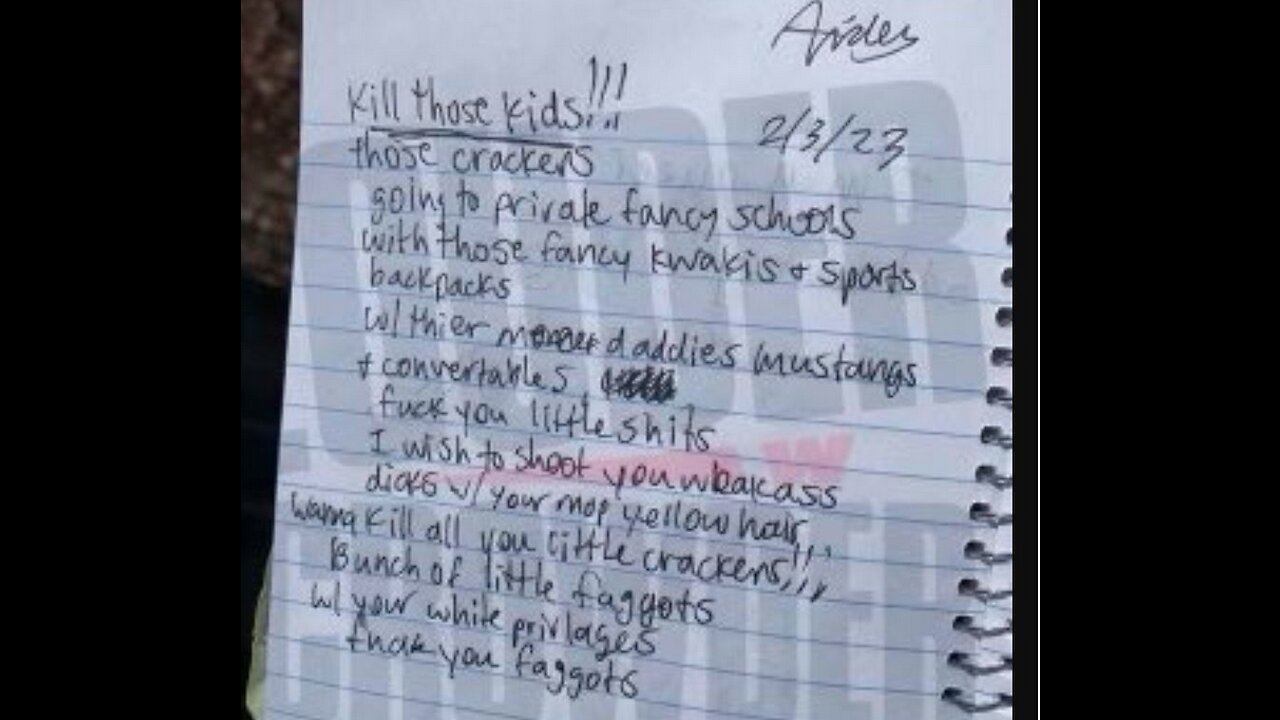 Aiden
Kill those kids!!!
2/3/23
those crackers
going to private fancy schools
with those fancy kwakis + sports
backpacks
w/ thier daddies mustangs
+ convertables
fuck you little shits
I wish to shoot you weakass
dicks w/ your mop yellow hair,,,
wanna kill all you little crackers!!!,
Bunch of little faggots
w/ your white privlages
fuck you faggots